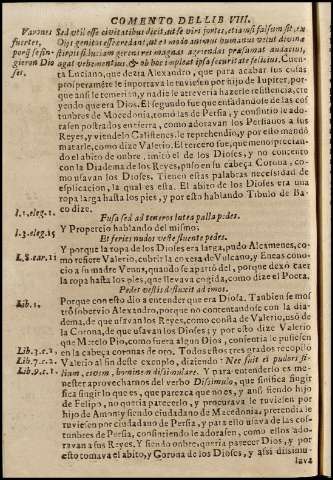 COMENTO DEL LIB VIII.
Varones fuertes, porq̃ se fingieron Dioses.
Sed utile esse civitatibus dicit, ut se viri fortes, etiamsi falsum sit, ex
Dijs genitos esse credant, ut eo modo animus humanus velut divinæ
stirpis fiduciam gerens res magnas agrediendas præsumat audacius,
agat vehementius, & ob hoc impleat ipsa securitate felicius. Cuen-
ta Luciano, que dezia Alexandro, que para acabar sus cosas
prosperamẽte le importava le tuviessen por hijo de Iupiter, por
que ansi le temerian, y nadie se atreveria hazerle resistencia, cre
yendo que era Dios. El segundo fue que enfadandose de las cos
tumbres de Macedonia, tomò las de Persia, y consintio le ado-
rasen postrados en tierra, como adoravan los Persianos a sus
Reyes, y viendelo Calistenes le reprehendio, y por esto mandó
matarle, como dize Valerio. El tercero fue, que menosprecian-
do el abito de onbre, imitó el de los Dioses, y no contento
con la Diadema de los Reyes, puso en su cabeça Corona, co-
mo usavan los Dioses. Tienen estas palabras necesidad de
esplicacion, la qual es esta. El abito de los Dioses era una
ropa larga hasta los pies, y por esto hablando Tibulo de Ba-
co dize.
l.1.eleg.1. Fusa sed ad teneros lutea palla pedes.
l.3.eleg.15 Y Propercio hablando del mismo;
Et feries nudos veste fluente pedes.
Y porque la ropa de los Dioses era larga, pudo Alcamenes, co-
mo refiere Valerio, cubrir la coxera de Vulcano, y Eneas cono-
cio a su madre Venus, quando se apartò del, porque dexò caer
la ropa hasta los pies, que llevava cogida, como dize el Poeta.
Lib.1. Pedes vestis defluxit ad imos.
Porque con esto dio a entender que era Diosa. Tanbien se mos
trò sobervio Alexandro, porque no contentandose con la dia-
dema, de que usavan los Reyes, como consta de Valerio, usò de
la Corona, de que usavan los Dioses; y por esto dize Valerio
que Marcelo Pio, como fuera algun Dios, consentia le pusiesen
Lib.3.c.1. en la cabeça coronas de oro. Todos estos tres grados recopilò
Lib.7.c.2. Valerio al fin deste exenplo, diziendo: Nec fuit ei pudori fi-
Lib.9.c.1. lium, civem, hominem dissimulare. Y para entenderlo es me-
nester aprovecharnos del verbo Dissimulo, que sinifica fingir
que es, que parezca que no es, y ansi siendo hijo
de Felipo, no queria parecerlo, y procurava le tuviesen por
hijo de Amon; y siendo ciudadano de Macedonia, pretendia le
tuviesen por ciudadano de Persia, y para ello usava de las cos-
tumbres de Persia, consintiendo le adorasen, como ellos ado-
ravan a sus Reyes. Y siendo onbre, queria parecer Dios, y por
esto tomava el abito, y Corona de los Dioses, y asi disimu-
lava